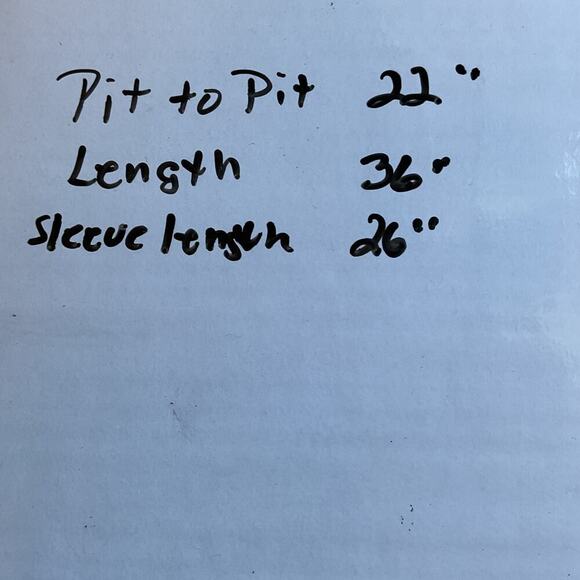 Pit to Pit 22"
Length 36"
Sleeve length 26"